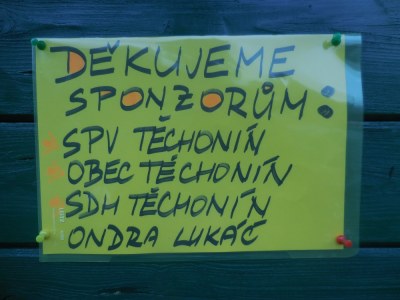 DĚKUJEME
SPONZORŮM:
SPV TĚCHONÍN
OBEC TĚCHONÍN
SDH TĚCHONÍN
ONDRA LUKÁČ